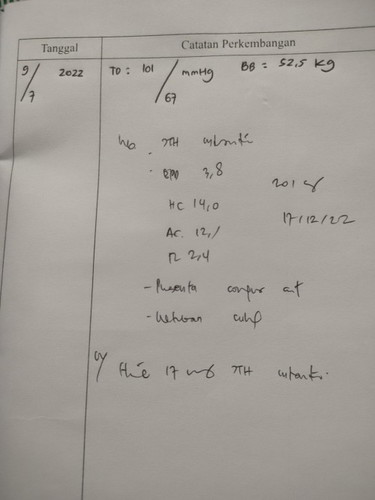 Tanggal Catatan Perkembangan
9/7 2022 TD : 101/67 mmHg BB = 52,5 kg
JTH
BPD 3,8
201 gr
HC 14,0
17/12/22
AC. 12,1
FL 2,4
- Plasenta corpus ant
- Ketuban cukup
17 mg JTH